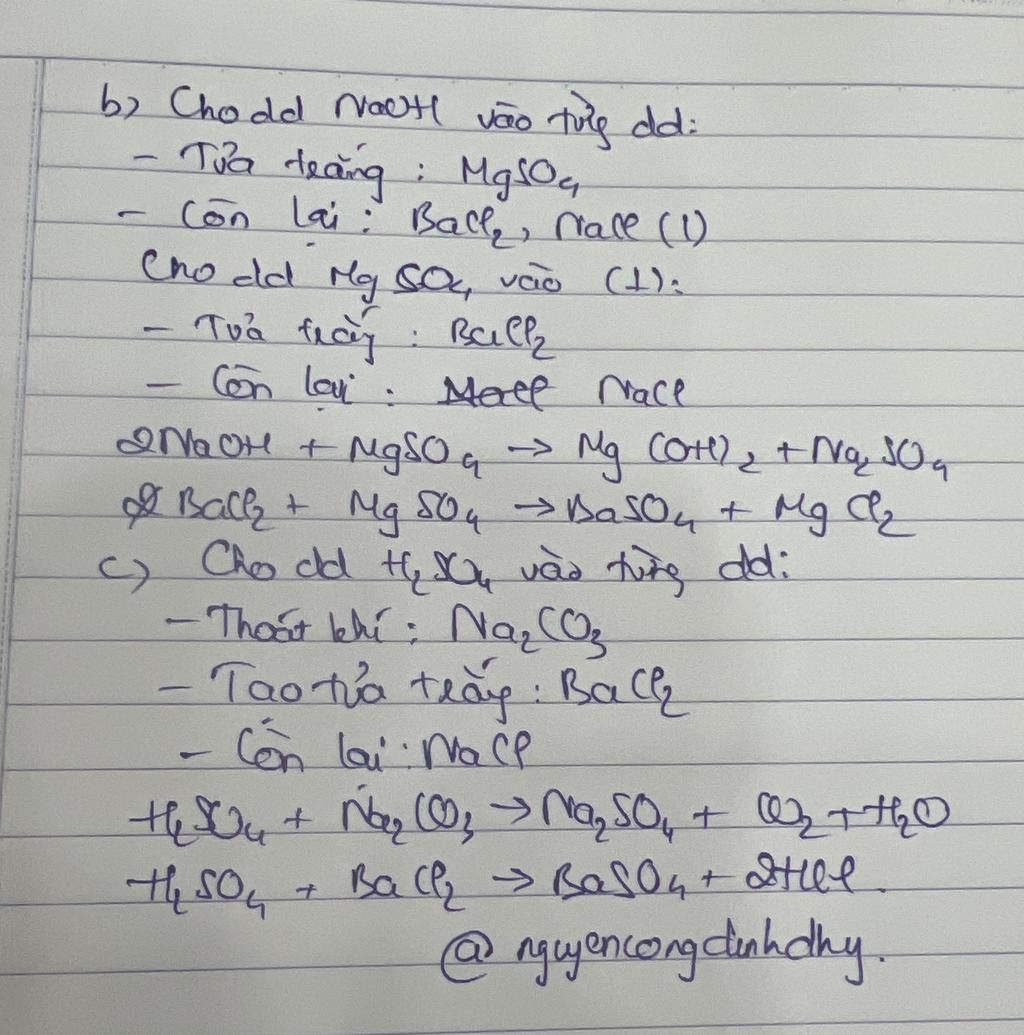 b) Cho dd NaOH vào từng dd:
- Tủa trắng : MgSO4
- Còn lại : BaCl2, NaCl (1)
Cho dd MgSO4 vào (1):
- Tủa trắng : BaCl2
- Còn lại : NaCl
2NaOH + MgSO4 → Mg(OH)2 + Na2SO4
BaCl2 + MgSO4 → BaSO4 + MgCl2
c) Cho dd H2SO4 vào từng dd:
- Thoát khí : Na2CO3
- Tạo tủa trắng : BaCl2
- Còn lại : NaCl
H2SO4 + Na2CO3 → Na2SO4 + CO2 + H2O
H2SO4 + BaCl2 → BaSO4 + 2HCl.
@nguyencongdinhdhy.